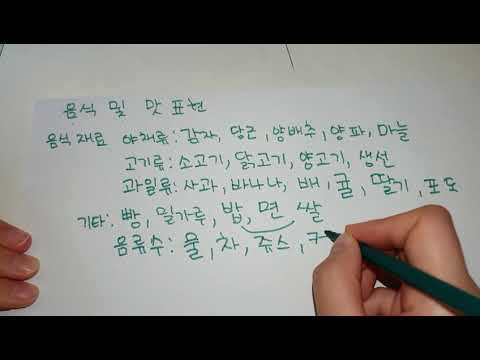 음식 및 맛 표현
음식 재료 야채류: 감자, 당근, 양배추, 양파, 마늘
고기류: 소고기, 닭고기, 양고기, 생선
과일류: 사과, 바나나, 배, 귤, 딸기, 포도
기타: 빵, 밀가루, 밥, 면 쌀
음류수: 물, 차, 쥬스, 커